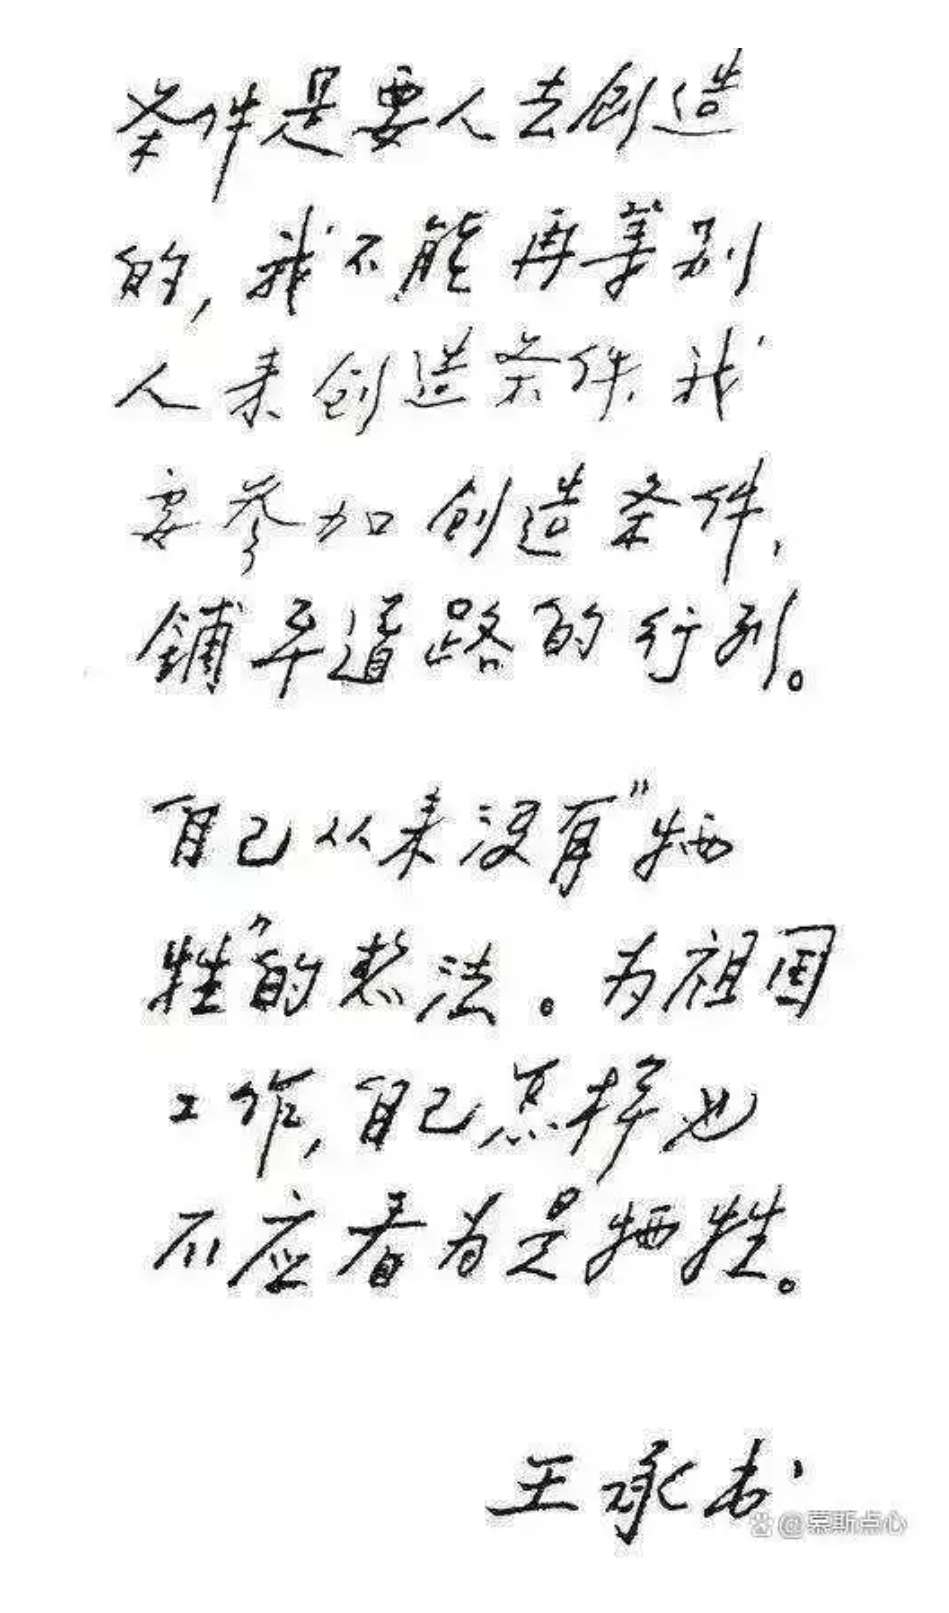 条件是要人去创造
的,我不能再等别
人来创造条件,我
要参加创造条件,
鋪平道路的行列。
自己从来没有“牺
牲”的想法。为祖国
工作,自己怎样也
不应看为是牺牲。
王承书
@慕斯点心